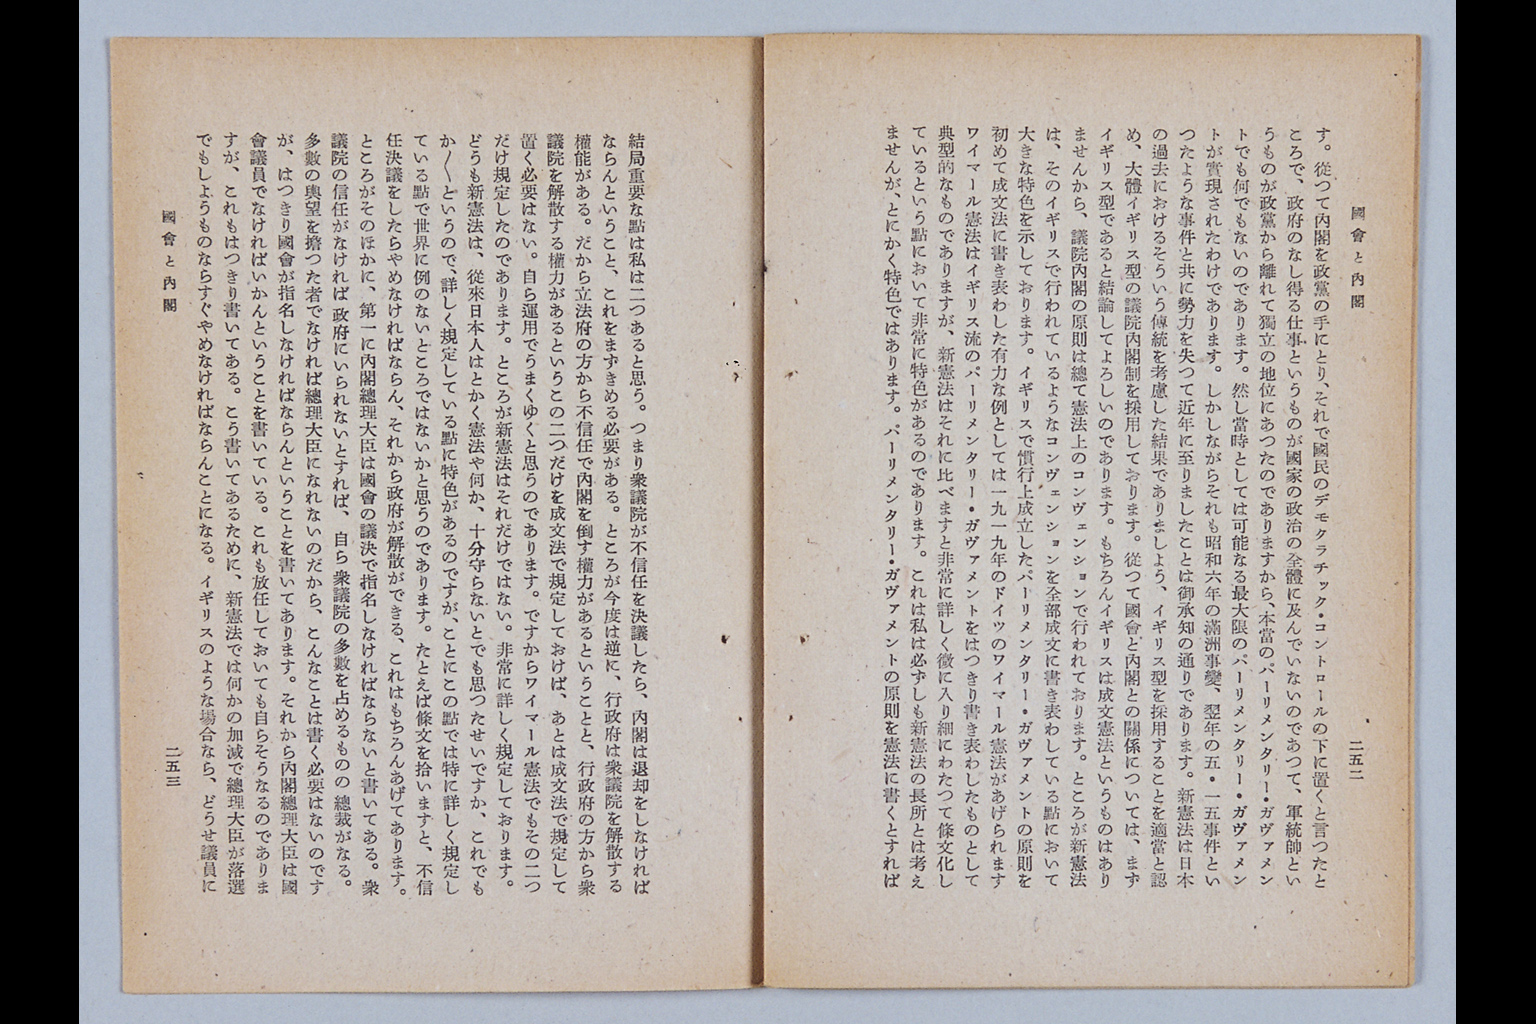 國會と內閣
二五二
す。從つて內閣を政黨の手にとり、それで國民のデモクラチック・コントロールの下に置くと言つたと
ころで、政府のなし得る仕事というものが國家の政治の全體に及んでいないのであつて、軍統帥とい
うものが政黨から離れて獨立の地位にあつたのでありますから、本當のパーリメンタリー・ガヴァメン
トでも何でもないのであります。然し當時としては可能なる最大限のパーリメンタリー・ガヴァメン
トが實現されたわけであります。しかしながらそれも昭和六年の滿洲事變、翌年の五・一五事件とい
つたような事件と共に勢力を失つて近年に至りましたことは御承知の通りであります。新憲法は日本
の過去におけるそういう傳統を考慮した結果でありましよう、イギリス型を採用することを適當と認
め、大體イギリス型の議院內閣制を採用しております。從つて國會と內閣との關係については、まず
イギリス型であると結論してよろしいのであります。もちろんイギリスは成文憲法というものはあり
ませんから、議院內閣の原則は總て憲法上のコンヴェンションで行われております。ところが新憲法
は、そのイギリスで行われているようなコンヴェンションを全部成文に書き表わしている點において
大きな特色を示しております。イギリスで慣行上成立したパーリメンタリー・ガヴァメントの原則を
初めて成文法に書き表わした有力な例としては一九一九年のドイツのワイマール憲法があげられます
ワイマール憲法はイギリス流のパーリメンタリー・ガヴァメントをはつきり書き表わしたものとして
典型的なものでありますが、新憲法はそれに比べますと非常に詳しく微に入り細にわたつて條文化し
ているという點において非常に特色があるのであります。これは私は必ずしも新憲法の長所とは考え
ませんが、とにかく特色ではあります。パーリメンタリー・ガヴァメントの原則を憲法に書くとすれば
結局重要な點は私は二つあると思う。つまり衆議院が不信任を決議したら、內閣は退却をしなければ
ならんということ、これをまずきめる必要がある。ところが今度は逆に、行政府は衆議院を解散する
權能がある。だから立法府の方から不信任で內閣を倒す權力があるということと、行政府の方から衆
議院を解散する權力があるというこの二つだけを成文法で規定しておけば、あとは成文法で規定して
置く必要はない。自ら運用でうまくゆくと思うのであります。ですからワイマール憲法でもその二つ
だけ規定したのであります。ところが新憲法はそれだけではない。非常に詳しく規定しております。
どうも新憲法は、從來日本人はとかく憲法や何か、十分守らないとでも思つたせいですか、これでも
か〱というので、詳しく規定している點に特色があるのですが、ことにこの點では特に詳しく規定し
ている點で世界に例のないところではないかと思うのであります。たとえば條文を拾いますと、不信
任決議をしたらやめなければならん、それから政府が解散ができる、これはもちろんあげてあります。
ところがそのほかに、第一に內閣總理大臣は國會の議決で指名しなければならないと書いてある。衆
議院の信任がなければ政府にいられないとすれば、自ら衆議院の多數を占めるものの總裁がなる。
多數の輿望を擔つた者でなければ總理大臣になれないのだから、こんなことは書く必要はないのです
が、はつきり國會が指名しなければならんということを書いてあります。それから內閣總理大臣は國
會議員でなければいかんということを書いている。これも放任しておいても自らそうなるのでありま
すが、これもはつきり書いてある。こう書いてあるために、新憲法では何かの加減で總理大臣が落選
でもしようものならすぐやめなければならんことになる。イギリスのような場合なら、どうせ議員に
國會と內閣
二五三